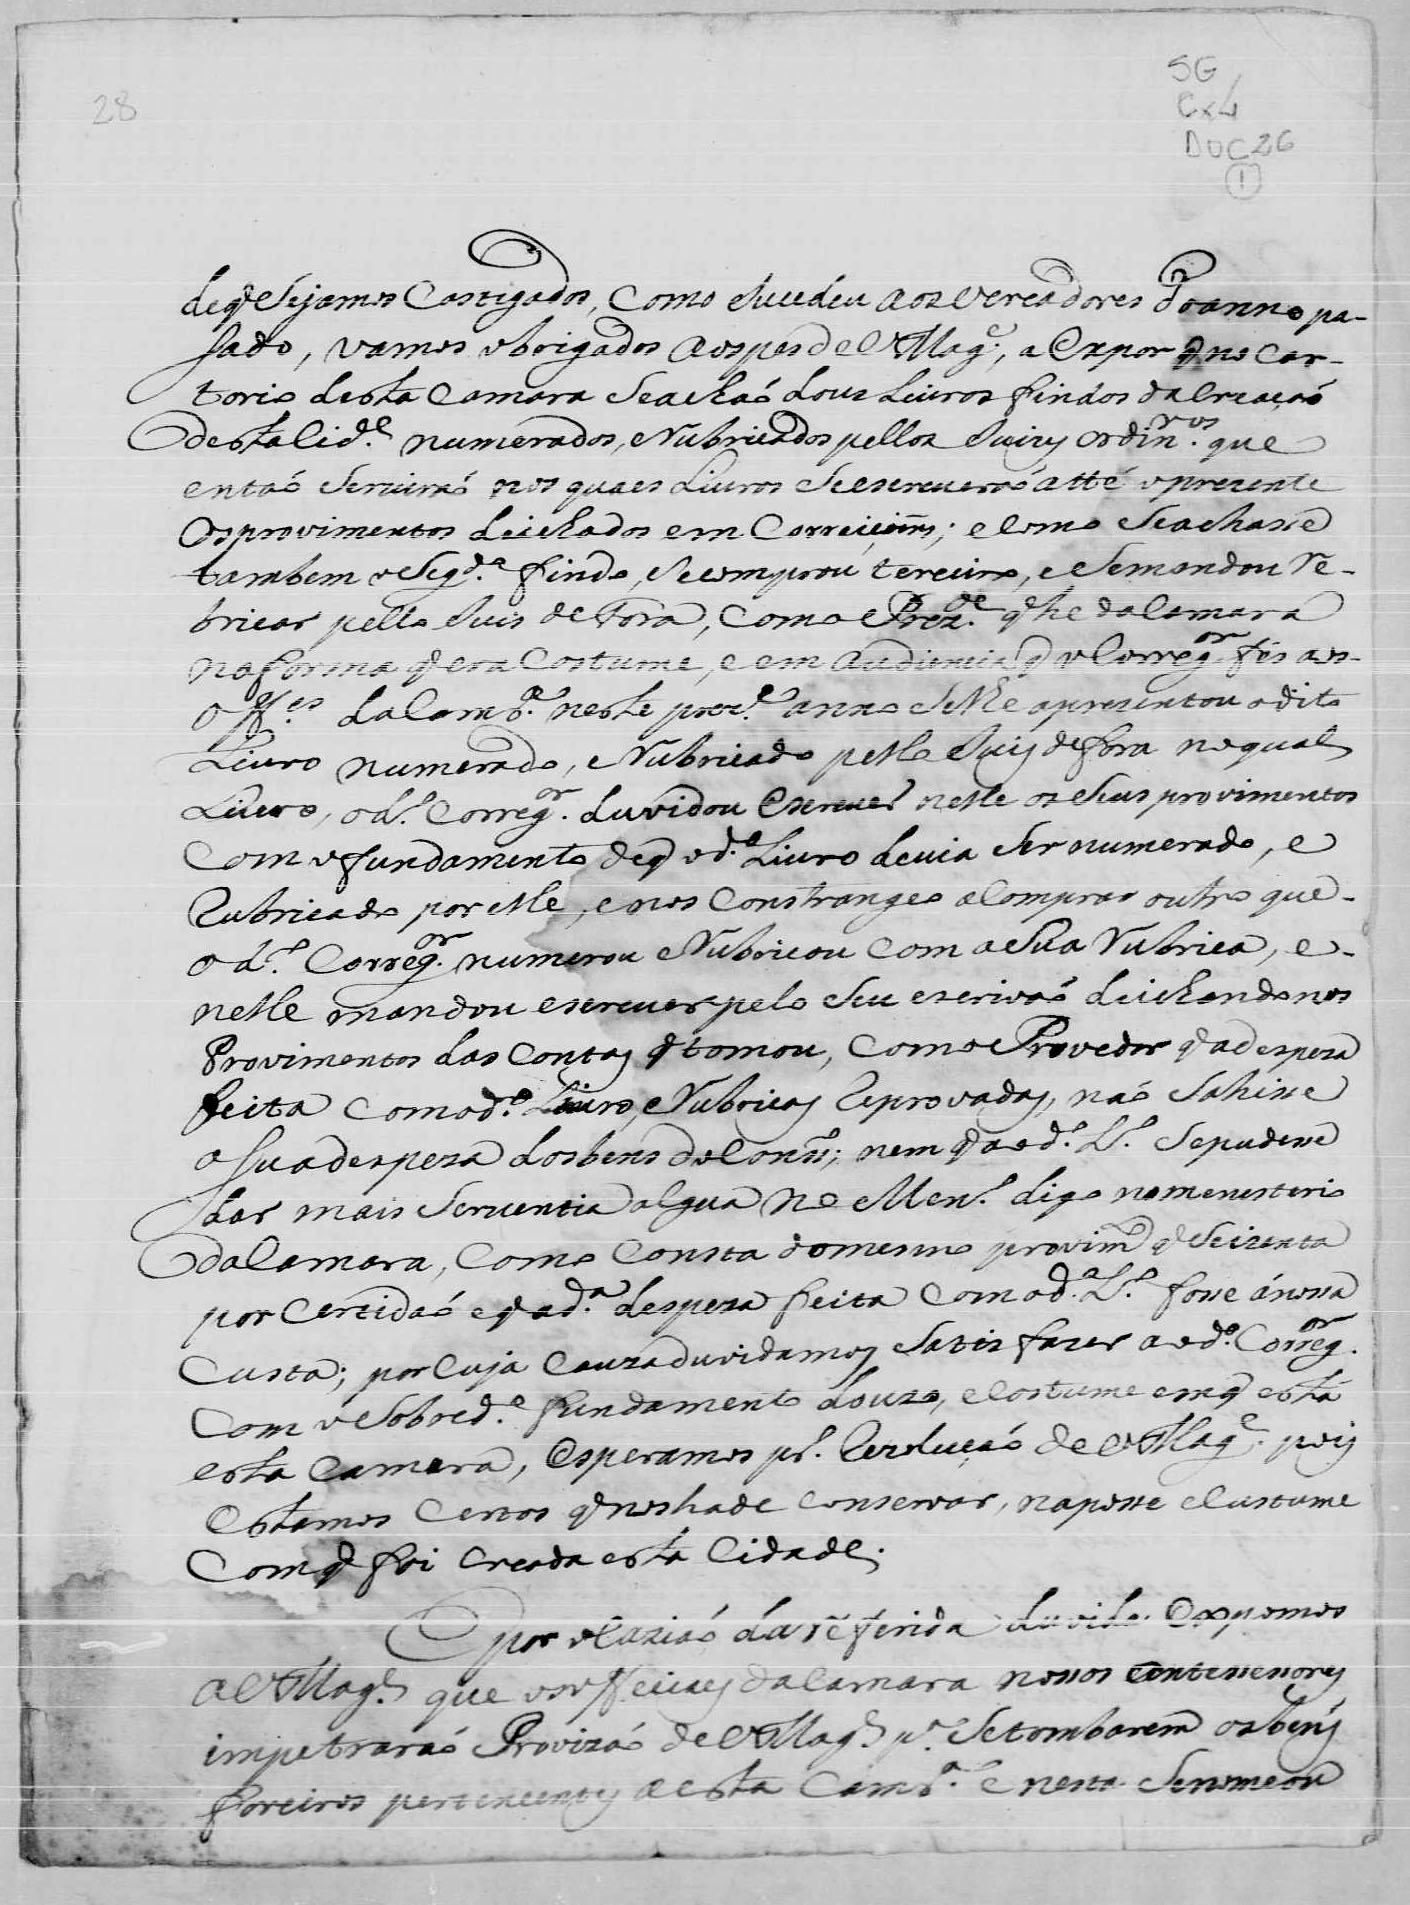 28
SG
Cx4
DOC 26
1
de q̃ Sejamos Castigados, como Sucedeu aos Vereadores do anno pa-
sado, vamos obrigados aos pes de V Mag.e, a Expor q̃ no Car-
torio desta Camara Seachaõ dous Livros findos da Creaçaõ
desta Cid.e numerados, e Rubricados pellos Juizes ordin.ros que
entaõ Serviraõ nos quaes Livros Seescreveraõ atté o prezente
os provimentos deichados em Correiçoins; e como Seachasse
tambem o Seg.do findo, Secomprou terceiro, e Semandou Re-
bricar pello Juis de Fora, como Prez.de q̃ he da Camara
na forma q̃ era Costume, e em Audiencia q̃ o Correg.or fes aos
off.es da Camr.a neste prez.e anno Selhe aprezentou o dito
Livro numerado, e Rubricado pello Juiz de fora no qual
Livro, o d.o Correg.or duvidou Escrever nelle os Seus provimentos
Com o fundamento de q̃ o d.o Livro devia Ser numerado, e
Rubricado por elle, e nos Constrangeo a Comprar outro que
o d.o Correg.or numerou e Rubricou com a Sua Rubrica, e
nelle mandou escrever pelo Seu escrivaõ deichando nos
Provimentos das Contas q̃ tomou, como Provedor q̃ a despeza
feita com o d.o Livro, e Rubricas Reprovadas, naõ Sahisse
a Sua despeza dos bens do Cons.o; nem q̃ a o d.o L.o Sepudesse
dar mais Serventia algua no Men.o digo no menesterio
da Camara, como Consta do mesmo provim.to q̃ Seizenta
por Certidaõ e q̃ a d.a despeza feita com o d.o L.o fosse á nossa
Custa; por Cuja Cauza duvidamos Satisfazer ao d.o Correg.or
Com o Sobred.o fundamento do uzo, e Costume em q̃ está
esta Camara, Esperamos p.la Rezoluçaõ de V Mag.e pois
Estamos Certos q̃ nos hade conservar, na posse e Custume
Com q̃ foi Creada esta Cidade.
E por ocaziaõ da referida duvida Expomos
a V Mag.e que os officiaes da Camara nossos Antessesores
impetraraõ Provizaõ de V Mag.e p.a Setombarem os bens
foreiros pertencentes a esta Camr.a e nesta Senomeou